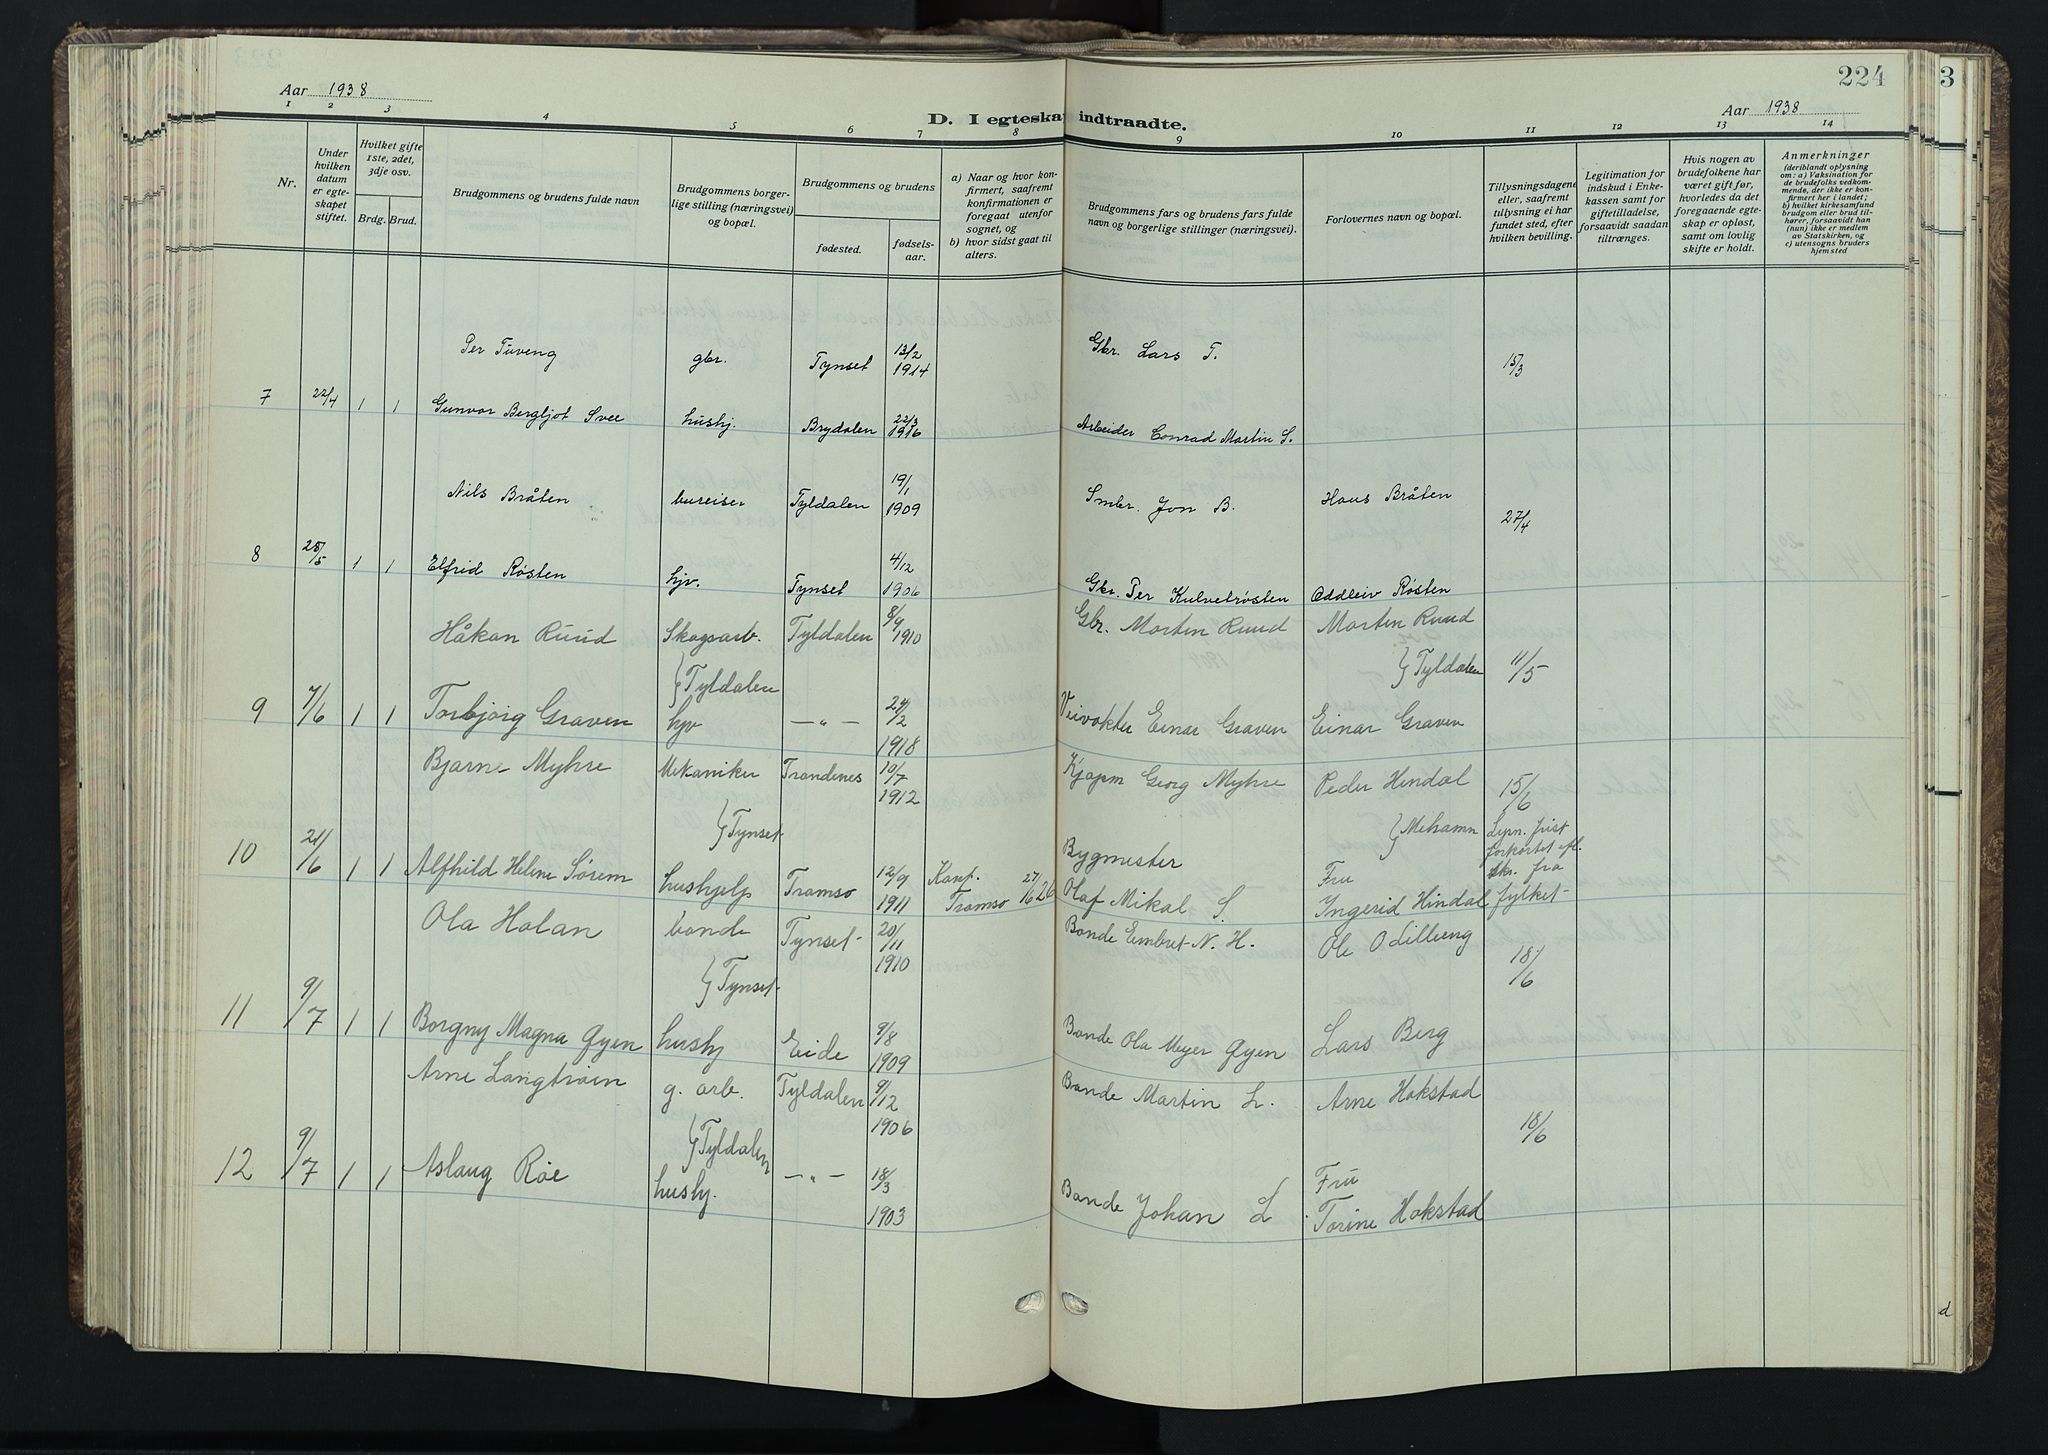 224
3
Aar 1938
Aar 1938
D. I egteska indtraadte.
1 2 3 4 5 6 7 8 9 10 11 12 13 14
Nr.
Under hvilken datum er egteskapet stiftet.
Hvilket gifte 1ste, 2det, 3dje osv.
Brdg. Brud.
Brudgommens og brudens fulde navn
Brudgommens borgerlige stilling (næringsvei) og bopæl.
Brudgommens og brudens
fødested.
fødselsaar.
a) Naar og hvor konfirmert, saafremt konfirmationen er foregaat utenfor sognet, og
b) hvor sidst gaat til alters.
Brudgommens fars og brudens fars fulde navn og borgerlige stillinger (næringsvei).
Forlovernes navn og bopæl.
Tillysningsdagene eller, saafremt tillysning ei har fundet sted, efter hvilken bevilling.
Legitimation for indskud i Enkekassen samt for giftetilladelse, forsaavidt saadan tiltrænges.
Hvis nogen av brudefolkene har været gift før, hvorledes da det foregaaende egteskap er opløst, samt om lovlig skifte er holdt.
Anmerkninger
(deriblandt oplysning om: a) Vaksination for de brudefolks vedkommende, der ikke er konfirmert her i landet; b) hvilket kirkesamfund brudgom eller brud tilhører, forsaavidt han (hun) ikke er medlem av Statskirken, og c) utensogns bruders hjemsted
Per Tuveng gbr. Tynset 13/2 1914 Gbr. Lars T. 15/3
7 22/4 1 1 Gunvor Bergljot Svee hushj. Brydalen 22/3 1916 Arbeider Conrad Martin S.
Nils Bråten bureiser Tyldalen 19/1 1909 Smbr. Jon B. Hans Bråten 27/4
8 25/5 1 1 Elfrid Røsten hjv. Tynset 4/12 1906 Gbr. Per Kulvetrøsten Oddleiv Røsten
Håkan Ruud Skogsarb. Tyldalen 8/9 1910 Gbr. Morten Ruud Morten Ruud
} Tyldalen } Tyldalen 11/5
9 7/6 1 1 Torbjørg Graven hjv — " — 24/2 1918 Veivokter Einar Graven Einar Graven
Bjarne Myhre Mekaniker Trondenes 10/7 1912 Kjøpm Georg Myhre Peder Hindal 15/6
} Tynset } Mehamn Lysn. frist
10 21/6 1 1 Alfhild Helene Sørem hushjelp Tromsø 12/9 1911 Konf. Tromsø 27/6 26 Bygmester Olaf Mikal S. Fru Ingerid Hindal forkortet efl. skr. fra fylket
Ola Holan bonde Tynset 20/11 1910 Bonde Embret N. H. Ole O Lilleeng 18/6
} Tynset
11 9/7 1 1 Borgny Magna Øyen hushj Eide 9/8 1909 Bonde Ola Meyer Øyen Lars Berg
Arne Langtrøen g. arb. Tyldalen 9/12 1906 Bonde Martin L. Arne Hokstad 18/6
} Tyldalen
12 9/7 1 1 Aslaug Røe hushj. — " — 18/3 1903 Bonde Johan L. Fru Torine Hokstad
d